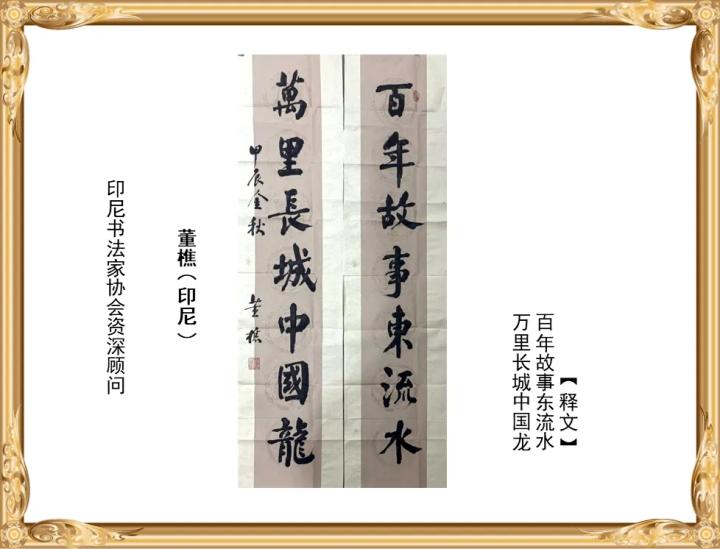 【释文】
百年故事东流水
万里长城中国龙
百年故事東流水
萬里長城中國龍
甲辰金秋 董樵
董樵（印尼）
印尼书法家协会资深顾问